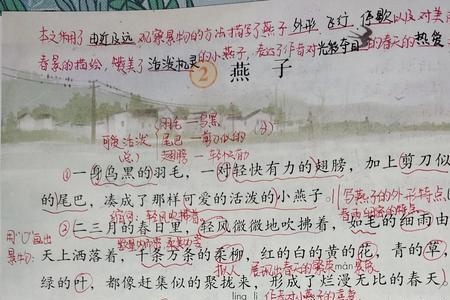 本文用了由近及远,观察景物的方法描写了燕子外形、飞行、停歇以及对美
春景的描绘,赞美了活泼机灵的小燕子,表达了作者对光彩夺目的春天的热爱
2 燕子
羽毛—乌黑
聪活泼 尾巴—剪刀似的 (分)
(总) 翅膀—轻快有力
①一身乌黑的羽毛,一对轻快有力的翅膀,加上剪刀似
的尾巴,凑成了那样可爱的活泼的小燕子。写燕子的外形特点
②二三月的春日里,轻风微微地吹拂着,如毛的细雨由
用"○"画出
景物:天上洒落着,千条万条的柔柳,红的白的黄的花,青的草,
拟人 màn
绿的叶,都像赶集似的聚拢来,形成了烂漫无比的春天。
líng lì